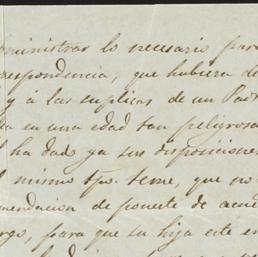 ministrar lo necesario para
respondencia, que hubiera de
y á las suplicas de un Pad
en una edad tan peligrosa
ha dado ya sus disposiciones
mismo tpo. teme, que no
mendacion de ponerte de acue
rgo, para que su hija esté en